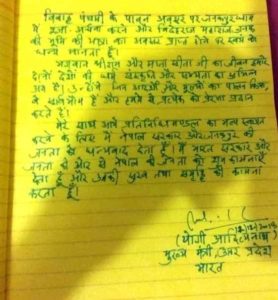 विवाह पंचमी के पावन अवसर पर जनकपुर धाम
में पूजा अर्चना करने और विदेहराज महाराज जनक
की भूमि की यात्रा का अवसर प्राप्त होने पर स्वयं को
धन्य मानता हूँ।
भगवान श्रीराम और माता सीता जी का जीवन हमारे
दोनों देशों की धर्म संस्कृति और सभ्यता का अभिन्न
अंग है। उन्होंने जिन आदर्शों और मूल्यों का पालन किया,
वे सार्वभौम हैं और हममें से प्रत्येक को प्रेरणा प्रदान
करते हैं।
मेरे साथ आये प्रतिनिधिमण्डल का भव्य स्वागत
करने के लिए मैं नेपाल सरकार और जनकपुर की
जनता को धन्यवाद देता हूँ। मैं भारत सरकार और
जनता की ओर से नेपाल की जनता को शुभकामनाएँ
देता हूँ और उनकी सुख तथा समृद्धि की कामना
करता हूँ।
12/12/2018
(योगी आदित्यनाथ)
मुख्य मंत्री, उत्तर प्रदेश
भारत